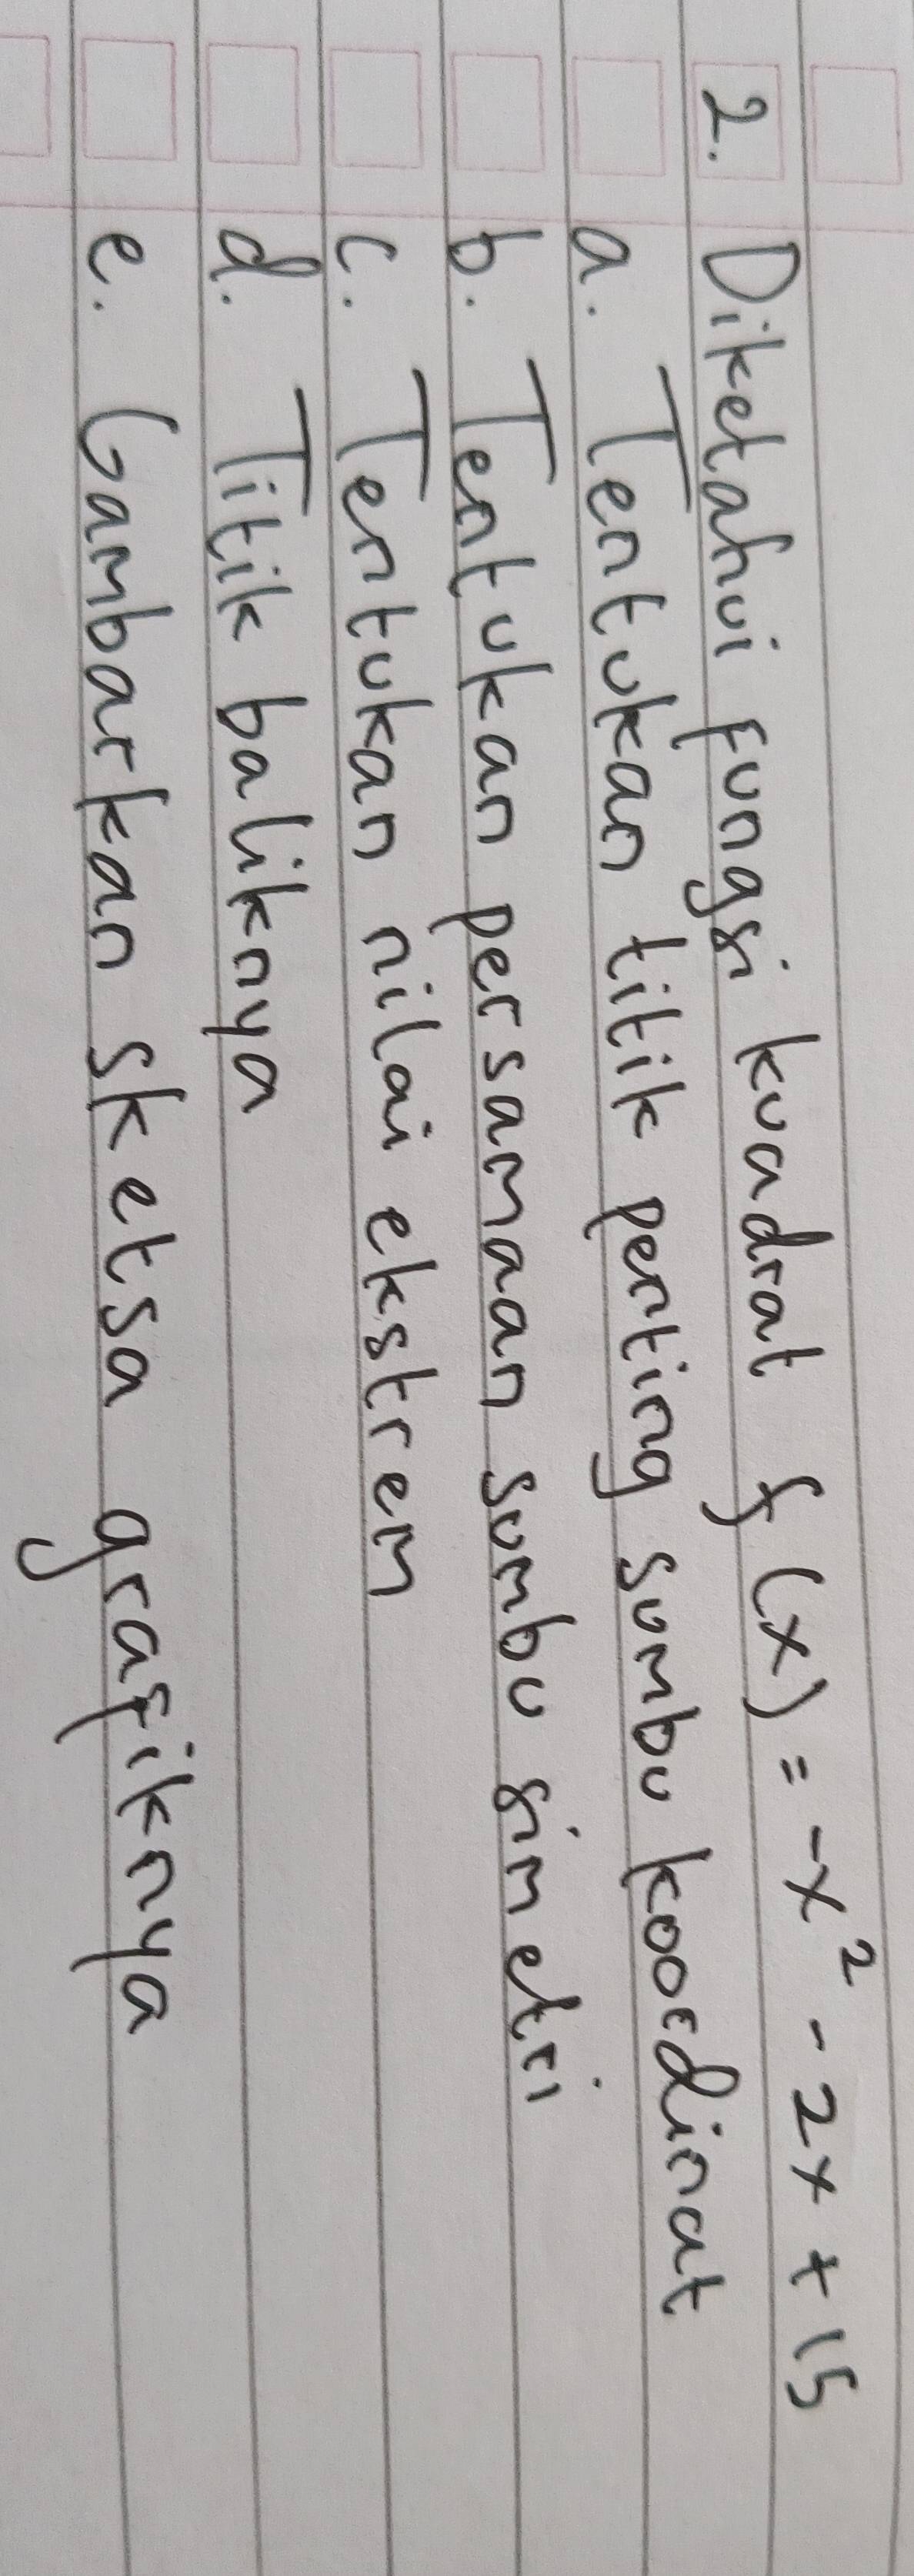 2. Diketahui fungsi kuadrat f(x) = -x² - 2x + 15
a. Tentukan titik penting sumbu koordinat
b. Tentukan persamaan sumbu simetri
c. Tentukan nilai ekstrem
d. Titik baliknya
e. Gambarkan sketsa grafiknya